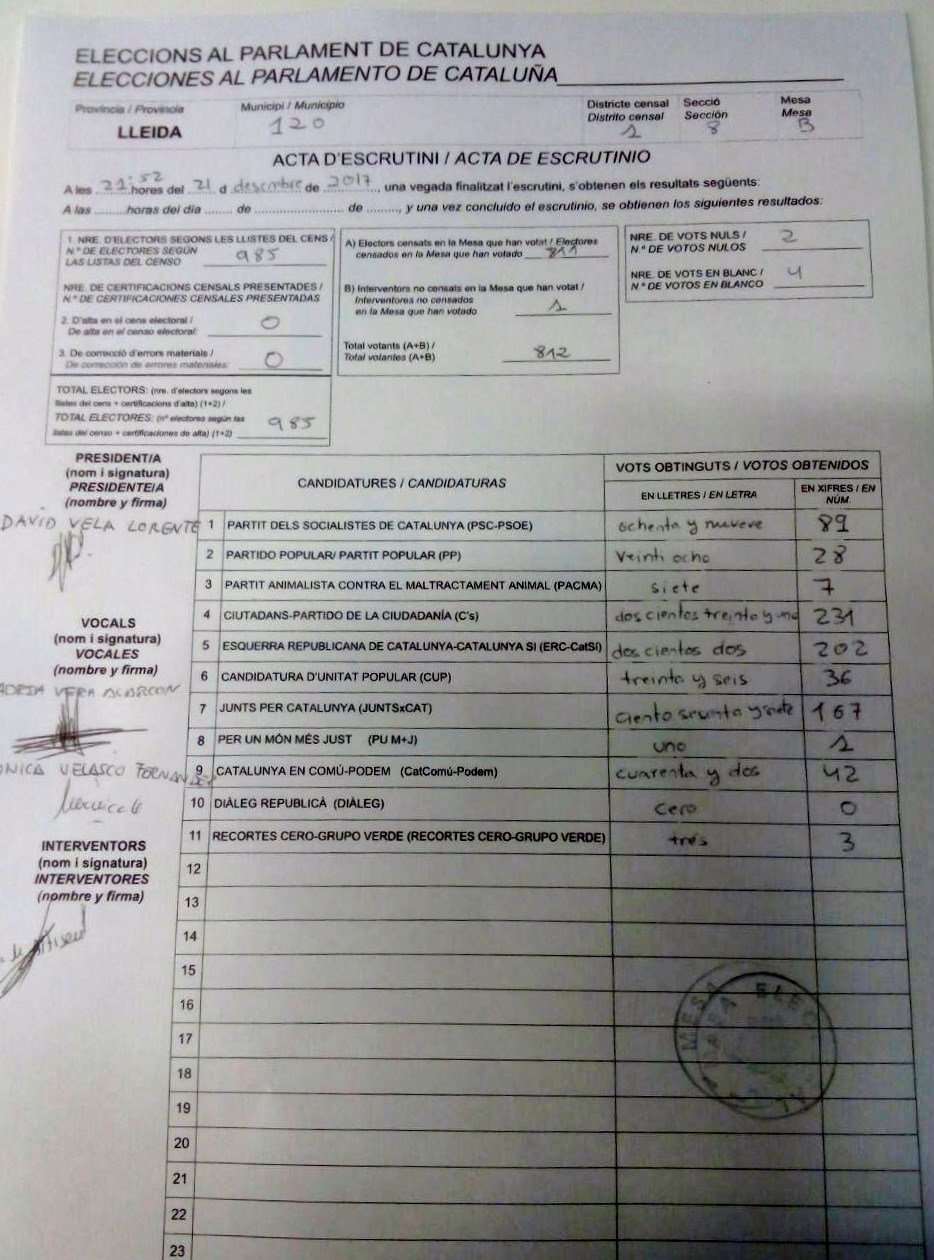 ELECCIONS AL PARLAMENT DE CATALUNYA
ELECCIONES AL PARLAMENTO DE CATALUÑA
Província / Provincia
LLEIDA
Municipi / Municipio
120
Districte censal
Distrito censal
1
Secció
Sección
8
Mesa
Mesa
B
ACTA D'ESCRUTINI / ACTA DE ESCRUTINIO
A les 21:52 hores del 21 d desembre de 2017, una vegada finalitzat l'escrutini, s'obtenen els resultats següents:
A las ......... horas del día ....... de ....................... de ........, y una vez concluido el escrutinio, se obtienen los siguientes resultados:
1. NRE. D'ELECTORS SEGONS LES LLISTES DEL CENS /
N.º DE ELECTORES SEGÚN
LAS LISTAS DEL CENSO 985
NRE. DE CERTIFICACIONS CENSALS PRESENTADES /
N.º DE CERTIFICACIONES CENSALES PRESENTADAS
2. D'alta en el cens electoral /
De alta en el censo electoral: 0
3. De correcció d'errors materials /
De corrección de errores materiales: 0
TOTAL ELECTORS: (nre. d'electors segons les
llistes del cens + certificacions d'alta) (1+2) /
TOTAL ELECTORES: (nº electores según las
listas del censo + certificaciones de alta) (1+2) 985
A) Electors censats en la Mesa que han votat / Electores
censados en la Mesa que han votado 811
B) Interventors no censats en la Mesa que han votat /
Interventores no censados
en la Mesa que han votado 1
Total votants (A+B) /
Total votantes (A+B) 812
NRE. DE VOTS NULS /
N.º DE VOTOS NULOS 2
NRE. DE VOTS EN BLANC /
N.º DE VOTOS EN BLANCO 4
PRESIDENT/A
(nom i signatura)
PRESIDENTE/A
(nombre y firma)
DAVID VELA LORENTE
VOCALS
(nom i signatura)
VOCALES
(nombre y firma)
VERA ALARCON
VELASCO
INTERVENTORS
(nom i signatura)
INTERVENTORES
(nombre y firma)
CANDIDATURES / CANDIDATURAS
VOTS OBTINGUTS / VOTOS OBTENIDOS
EN LLETRES / EN LETRA
EN XIFRES / EN NÚM.
1 PARTIT DELS SOCIALISTES DE CATALUNYA (PSC-PSOE) ochenta y nueve 89
2 PARTIDO POPULAR/ PARTIT POPULAR (PP) Veinti ocho 28
3 PARTIT ANIMALISTA CONTRA EL MALTRACTAMENT ANIMAL (PACMA) siete 7
4 CIUTADANS-PARTIDO DE LA CIUDADANÍA (C's) dos cientos treinta y uno 231
5 ESQUERRA REPUBLICANA DE CATALUNYA-CATALUNYA SI (ERC-CatSí) dos cientos dos 202
6 CANDIDATURA D'UNITAT POPULAR (CUP) treinta y seis 36
7 JUNTS PER CATALUNYA (JUNTSxCAT) ciento sesenta y siete 167
8 PER UN MÓN MÉS JUST (PU M+J) uno 1
9 CATALUNYA EN COMÚ-PODEM (CatComú-Podem) cuarenta y dos 42
10 DIÀLEG REPUBLICÀ (DIÀLEG) cero 0
11 RECORTES CERO-GRUPO VERDE (RECORTES CERO-GRUPO VERDE) tres 3
12
13
14
15
16
17
18
19
20
21
22
23
MESA ELEC